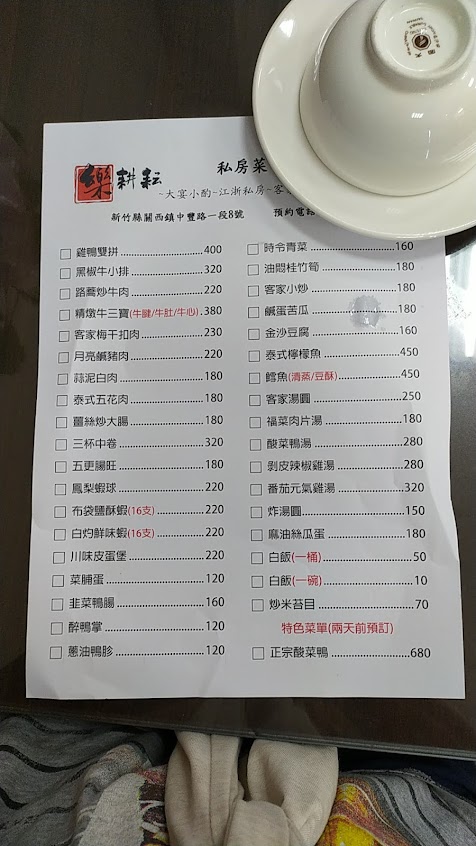 樂耕耘
私房菜
~大宴小酌~江浙私房~客
新竹縣關西鎮中豐路一段8號 預約電話
雞鴨雙拼 400
黑椒牛小排 320
路蕎炒牛肉 220
精燉牛三寶(牛腱/牛肚/牛心) 380
客家梅干扣肉 230
月亮鹹豬肉 220
蒜泥白肉 180
泰式五花肉 180
薑絲炒大腸 180
三杯中卷 320
五更腸旺 180
鳳梨蝦球 220
布袋鹽酥蝦(16支) 220
白灼鮮味蝦(16支) 220
川味皮蛋堡 220
菜脯蛋 120
韭菜鴨腸 160
醉鴨掌 120
蔥油鴨胗 120
時令青菜 160
油悶桂竹筍 180
客家小炒 180
鹹蛋苦瓜 180
金沙豆腐 160
泰式檸檬魚 450
鱈魚(清蒸/豆酥) 450
客家湯圓 250
福菜肉片湯 180
酸菜鴨湯 280
剝皮辣椒雞湯 280
番茄元氣雞湯 320
炸湯圓 150
麻油絲瓜蛋 180
白飯(一桶) 50
白飯(一碗) 10
炒米苔目 70
特色菜單(兩天前預訂)
正宗酸菜鴨 680